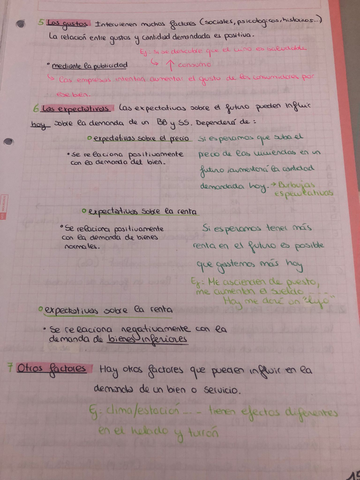 5. Los gustos: Intervienen muchos factores (sociales, psicologicos, historicos...)
La relación entre gustos y cantidad demandada es positiva.
Ej: Si se descubre que el vino es saludable
↳ ↑ consumo
* mediante la publicidad
↳ Las empresas intentan aumentar el gusto de los consumidores por
ese bien.
6. Las expectativas: Las expectativas sobre el futuro pueden influir
hoy sobre la demanda de un BB y SS. Dependerá de:
expectativas sobre el precio
Si esperamos que suba el
precio de las viviendas en un
futuro, aumentará la cantidad
demandada hoy. → Burbujas
especulativas
* Se relaciona positivamente
con la demanda del bien.
expectativas sobre la renta
* Se relaciona positivamente
con la demanda de bienes
normales.
Si esperamos tener más
renta en el futuro es posible
que gastemos más hoy
Ej: Me ascienden de puesto,
me aumentan el sueldo.
Hoy me daré un "lujo"
expectativas sobre la renta
* Se relaciona negativamente con la
demanda de bienes inferiores
7 Otros factores: Hay otros factores que pueden influir en la
demanda de un bien o servicio.
Ej: clima/estación... tienen efectos diferentes
en el helado y turrón